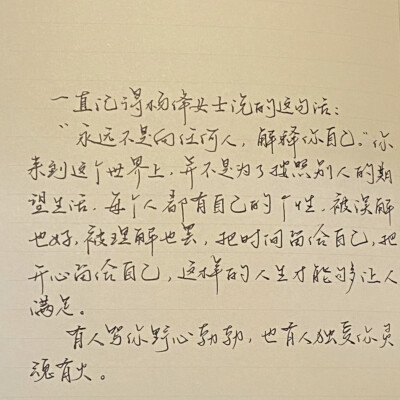 一直记得杨绛女士说的这句话：
“永远不要向任何人，解释你自己。”你
来到这个世界上，并不是为了按照别人的期
望生活，每个人都有自己的个性，被误解
也好，被理解也罢，把时间留给自己，把
开心留给自己，这样的人生才能够让人
满足。
有人骂你野心勃勃，也有人独爱你灵
魂有火。